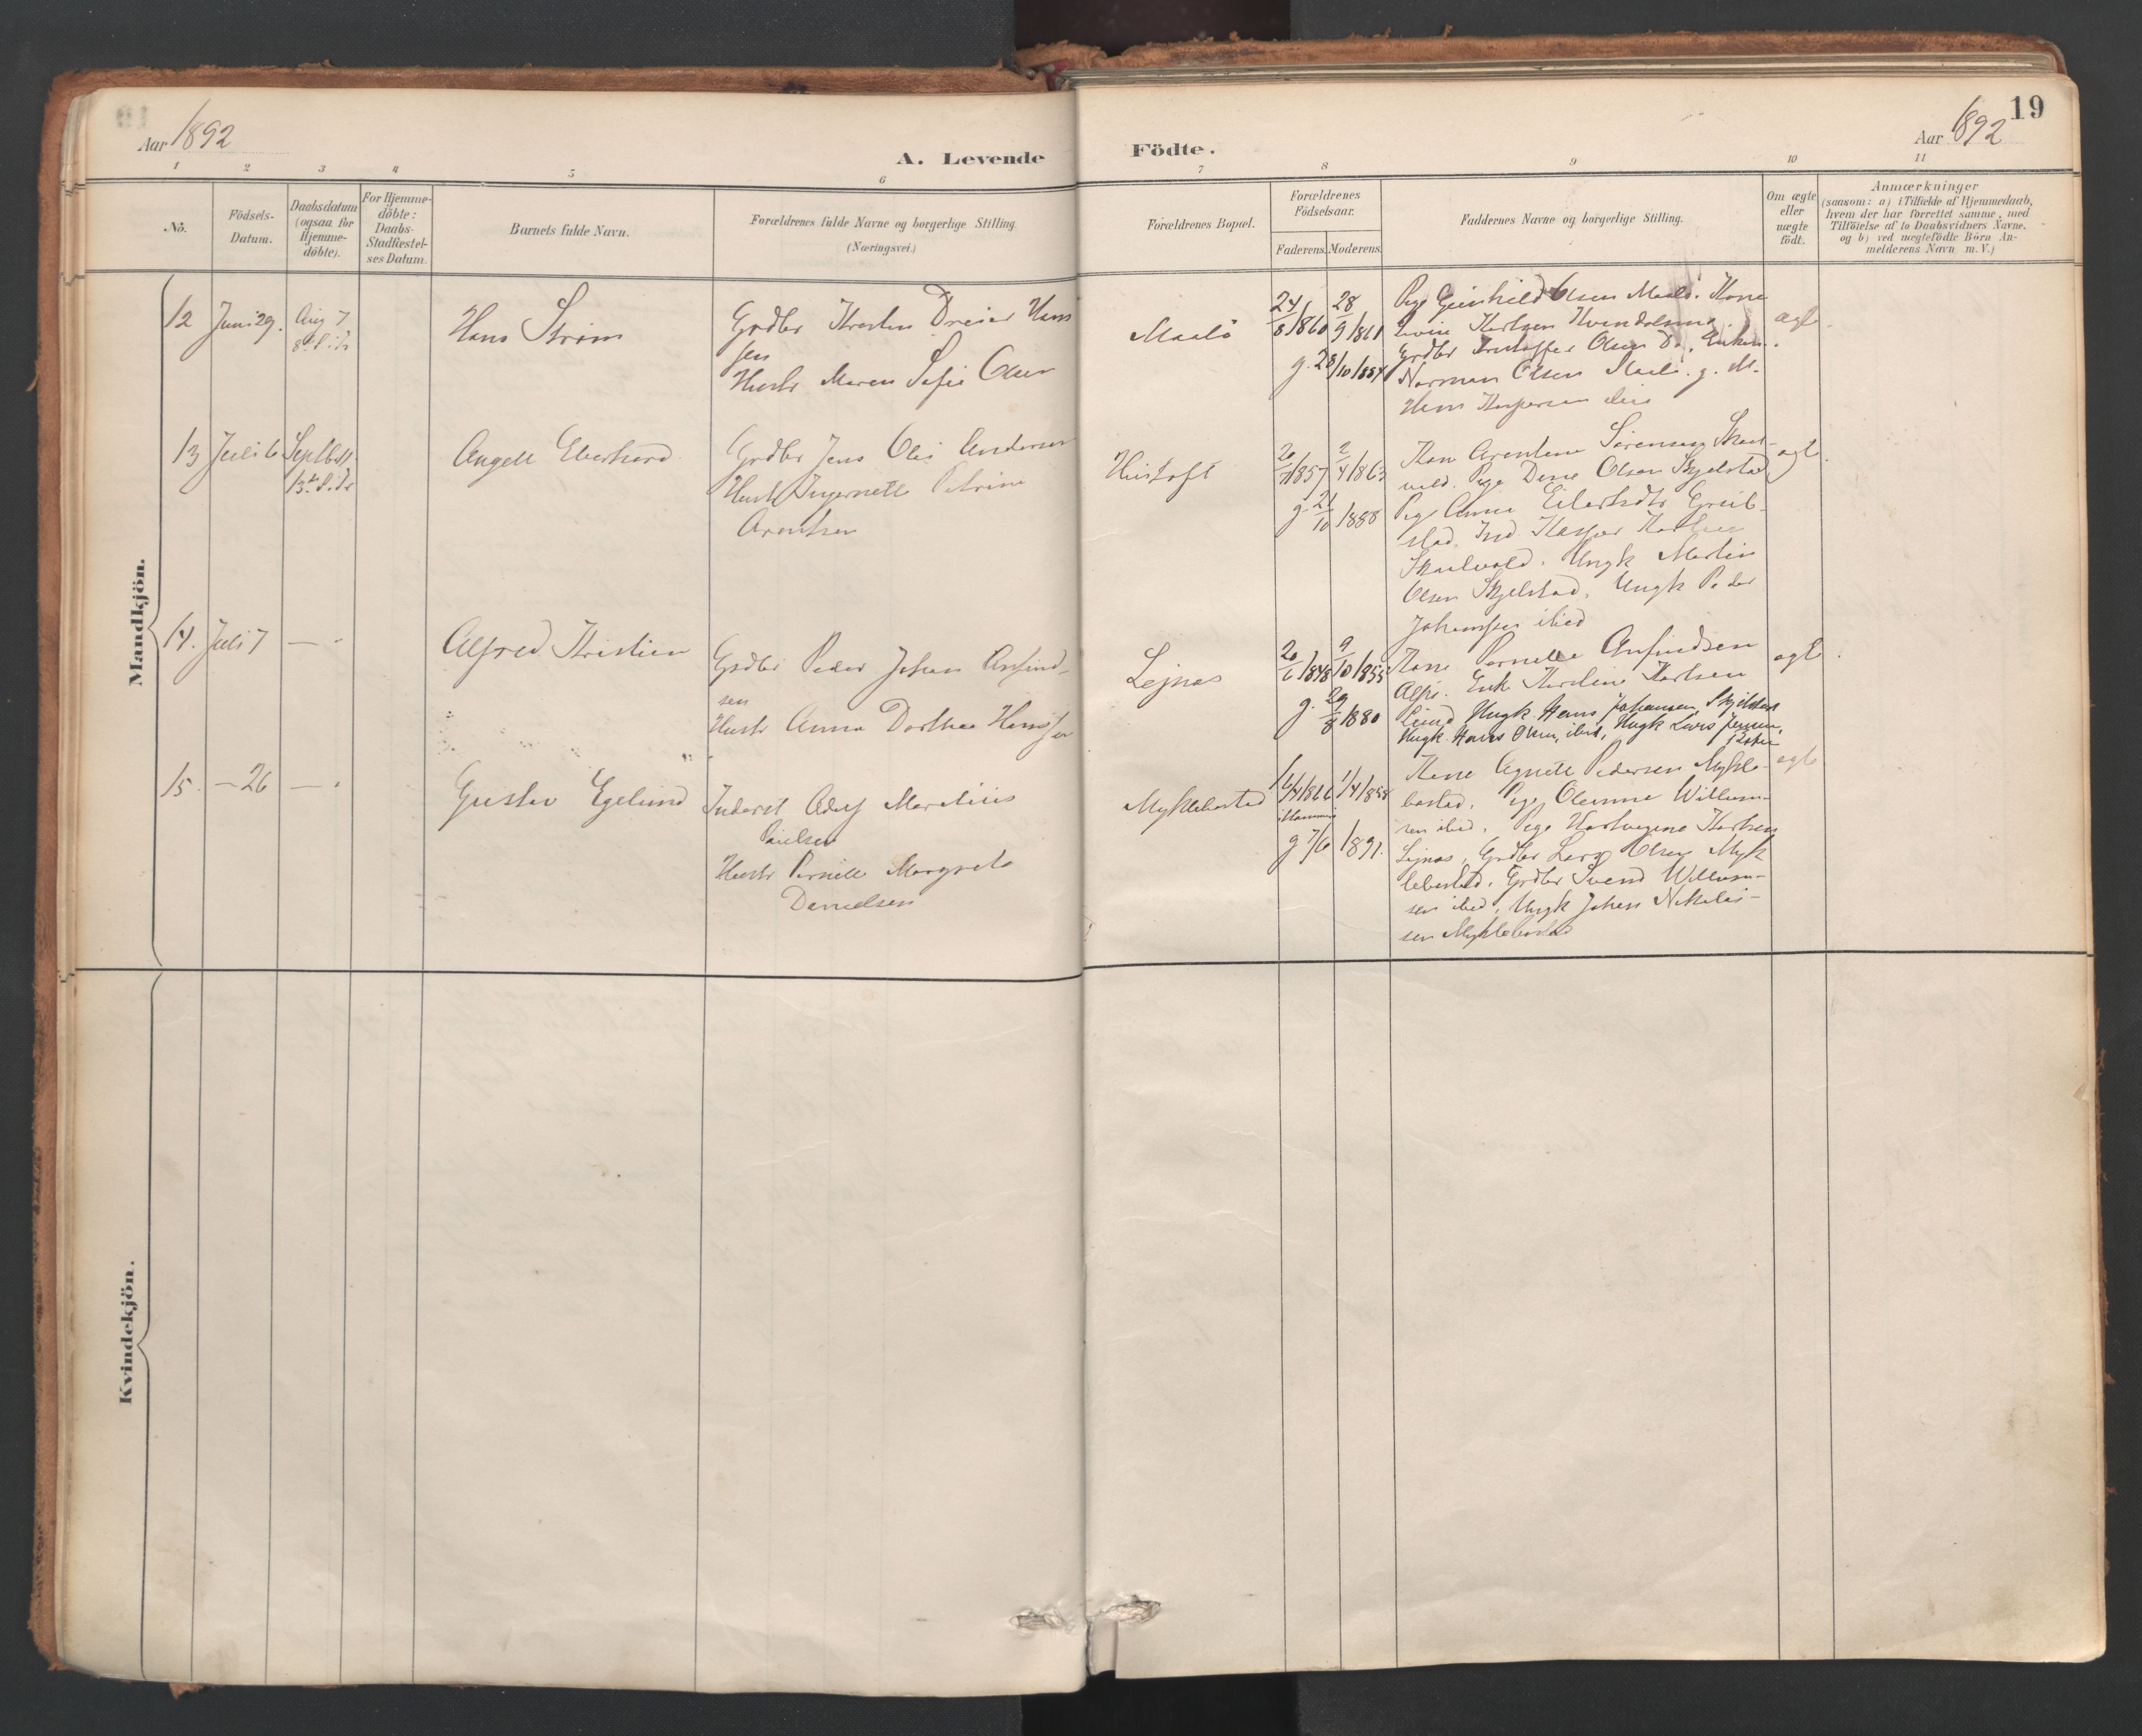 19
Aar 1892
A. Levende Födte.
Aar 1892
1 2 3 4 5 6 7 8 9 10 11
No.
Födsels-Datum.
Daabsdatum (ogsaa for Hjemme-döbte).
For Hjemme-döbte: Daabs-Stadfæstel-ses Datum.
Barnets fulde Navn.
Forældrenes fulde Navne og borgerlige Stilling
(Næringsvei.)
Forældrenes Bopæl.
Forældrenes Födselsaar.
Faderens. Moderens.
Faddernes Navne og borgerlige Stilling.
Om ægte eller uægte födt.
Anmærkninger
(saasom: a) i Tilfælde af Hjemmedaab,
hvem der har forrettet samme, med
Tilföielse af to Daabsvidners Navne.
og b) ved uægtefödte Börn An-
melderens Navn m. V.)
Mandkjön.
12 Juni 29. Aug 7
Hans Strøm
Grdbr Kresten Dreier Hans
sen
Hustr Maren Sofie Olsen
Maalö
24/8/1860 28/9/1861
g. 28/10/1884
Pige Olsen Maalö. Kone
Karlsen
Grdbr Olsen
Olsen
Hans
ægte
13 Juli 6 Septbr 11
Angell Eberhard
Grdbr Jens Olai Andersen
Hustr Ingernelle Petrine
Arentsen
Hustoft
20/7/1857 2/4/1863
g. 21/10 1888
Kone Arentine Sørensen Skaal-
vold. Pige Olsen Skjelstad
Pige Anna Eilertsdtr Greib-
stad. Ind. Kasper
Skaalvold. Ungk Martin
Olsen Skjelstad, Ungk Peder
Johansen ibid
ægte
14. Juli 7 — "
Alfred Kristian
Grdbr Peder Johan Anfind-
sen
Hustr Anna Dorthea Hansen
Lejnes
20/6/1848 9/10/1855
g. 29/8/1880
Kone Pernelle Anfindsen
Enk Karoline Karlsen
Lund Ungk. Hans Johansen, Skjelstad
Ungk. Hans Olsen, ibid, Ungk Lars Jensen,
ægte
15. — 26 — "
Gustav Egelund
Inderst Adolf Marelius
Paulsen
Hustr Pernille Margrete
Danielsen
Myklebostad
16/4/1866 1/4/1858
g 7/6 1891.
Kone Agnete Pedersen Mykle-
bostad, Pige Oleanna Willum-
sen ibid, Pige Hartvigine Karlsen
Lejnes, Grdbr Lars Olsen Myk
lebostad, Grdbr Svend Willum-
sen ibid, Ungk Johan Nikolai-
sen Myklebostad
ægte
Kvindekjön.